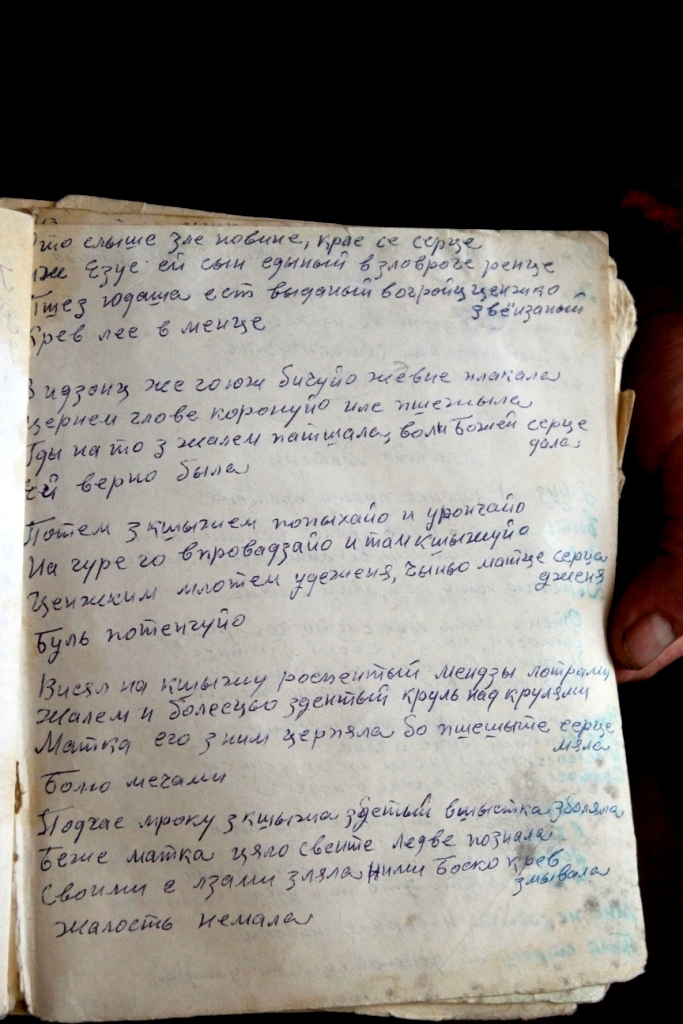 то слыше зле новине, крае се серце
иж Езус ей сын едыный в зловроге ренце
Пшез юдаша ест выданый вогройц ценжко
звёнзаный
Крев лее в менце
Видзонц же го юж бичуйо жевне плакала
Цернем глове коронуйо иле пшежыла
Гды на то з жалем патшала, воли Божей серце
дала
Ей верно была
Потем з кшыжем попыхайо и урончайо
На гуре го впровадзайо и там кшыжуйо
Ценжским млотем удеженя, чыньо матце серца
дженя
Буль потенгуйо
Висял на кшыжу роспентый мендзы лотрами
Жалем и болесцьо здентый круль над крулями
Матка его з ним церпяла бо пшешыте серце
мяла
Болю мечами
Подчас мроку з кшыжа здетый вшыстка зболяла
Беже матка цяло свенте ледве познала
Своими е лзами зляла ними Боско крев
змывала
Жалость немала